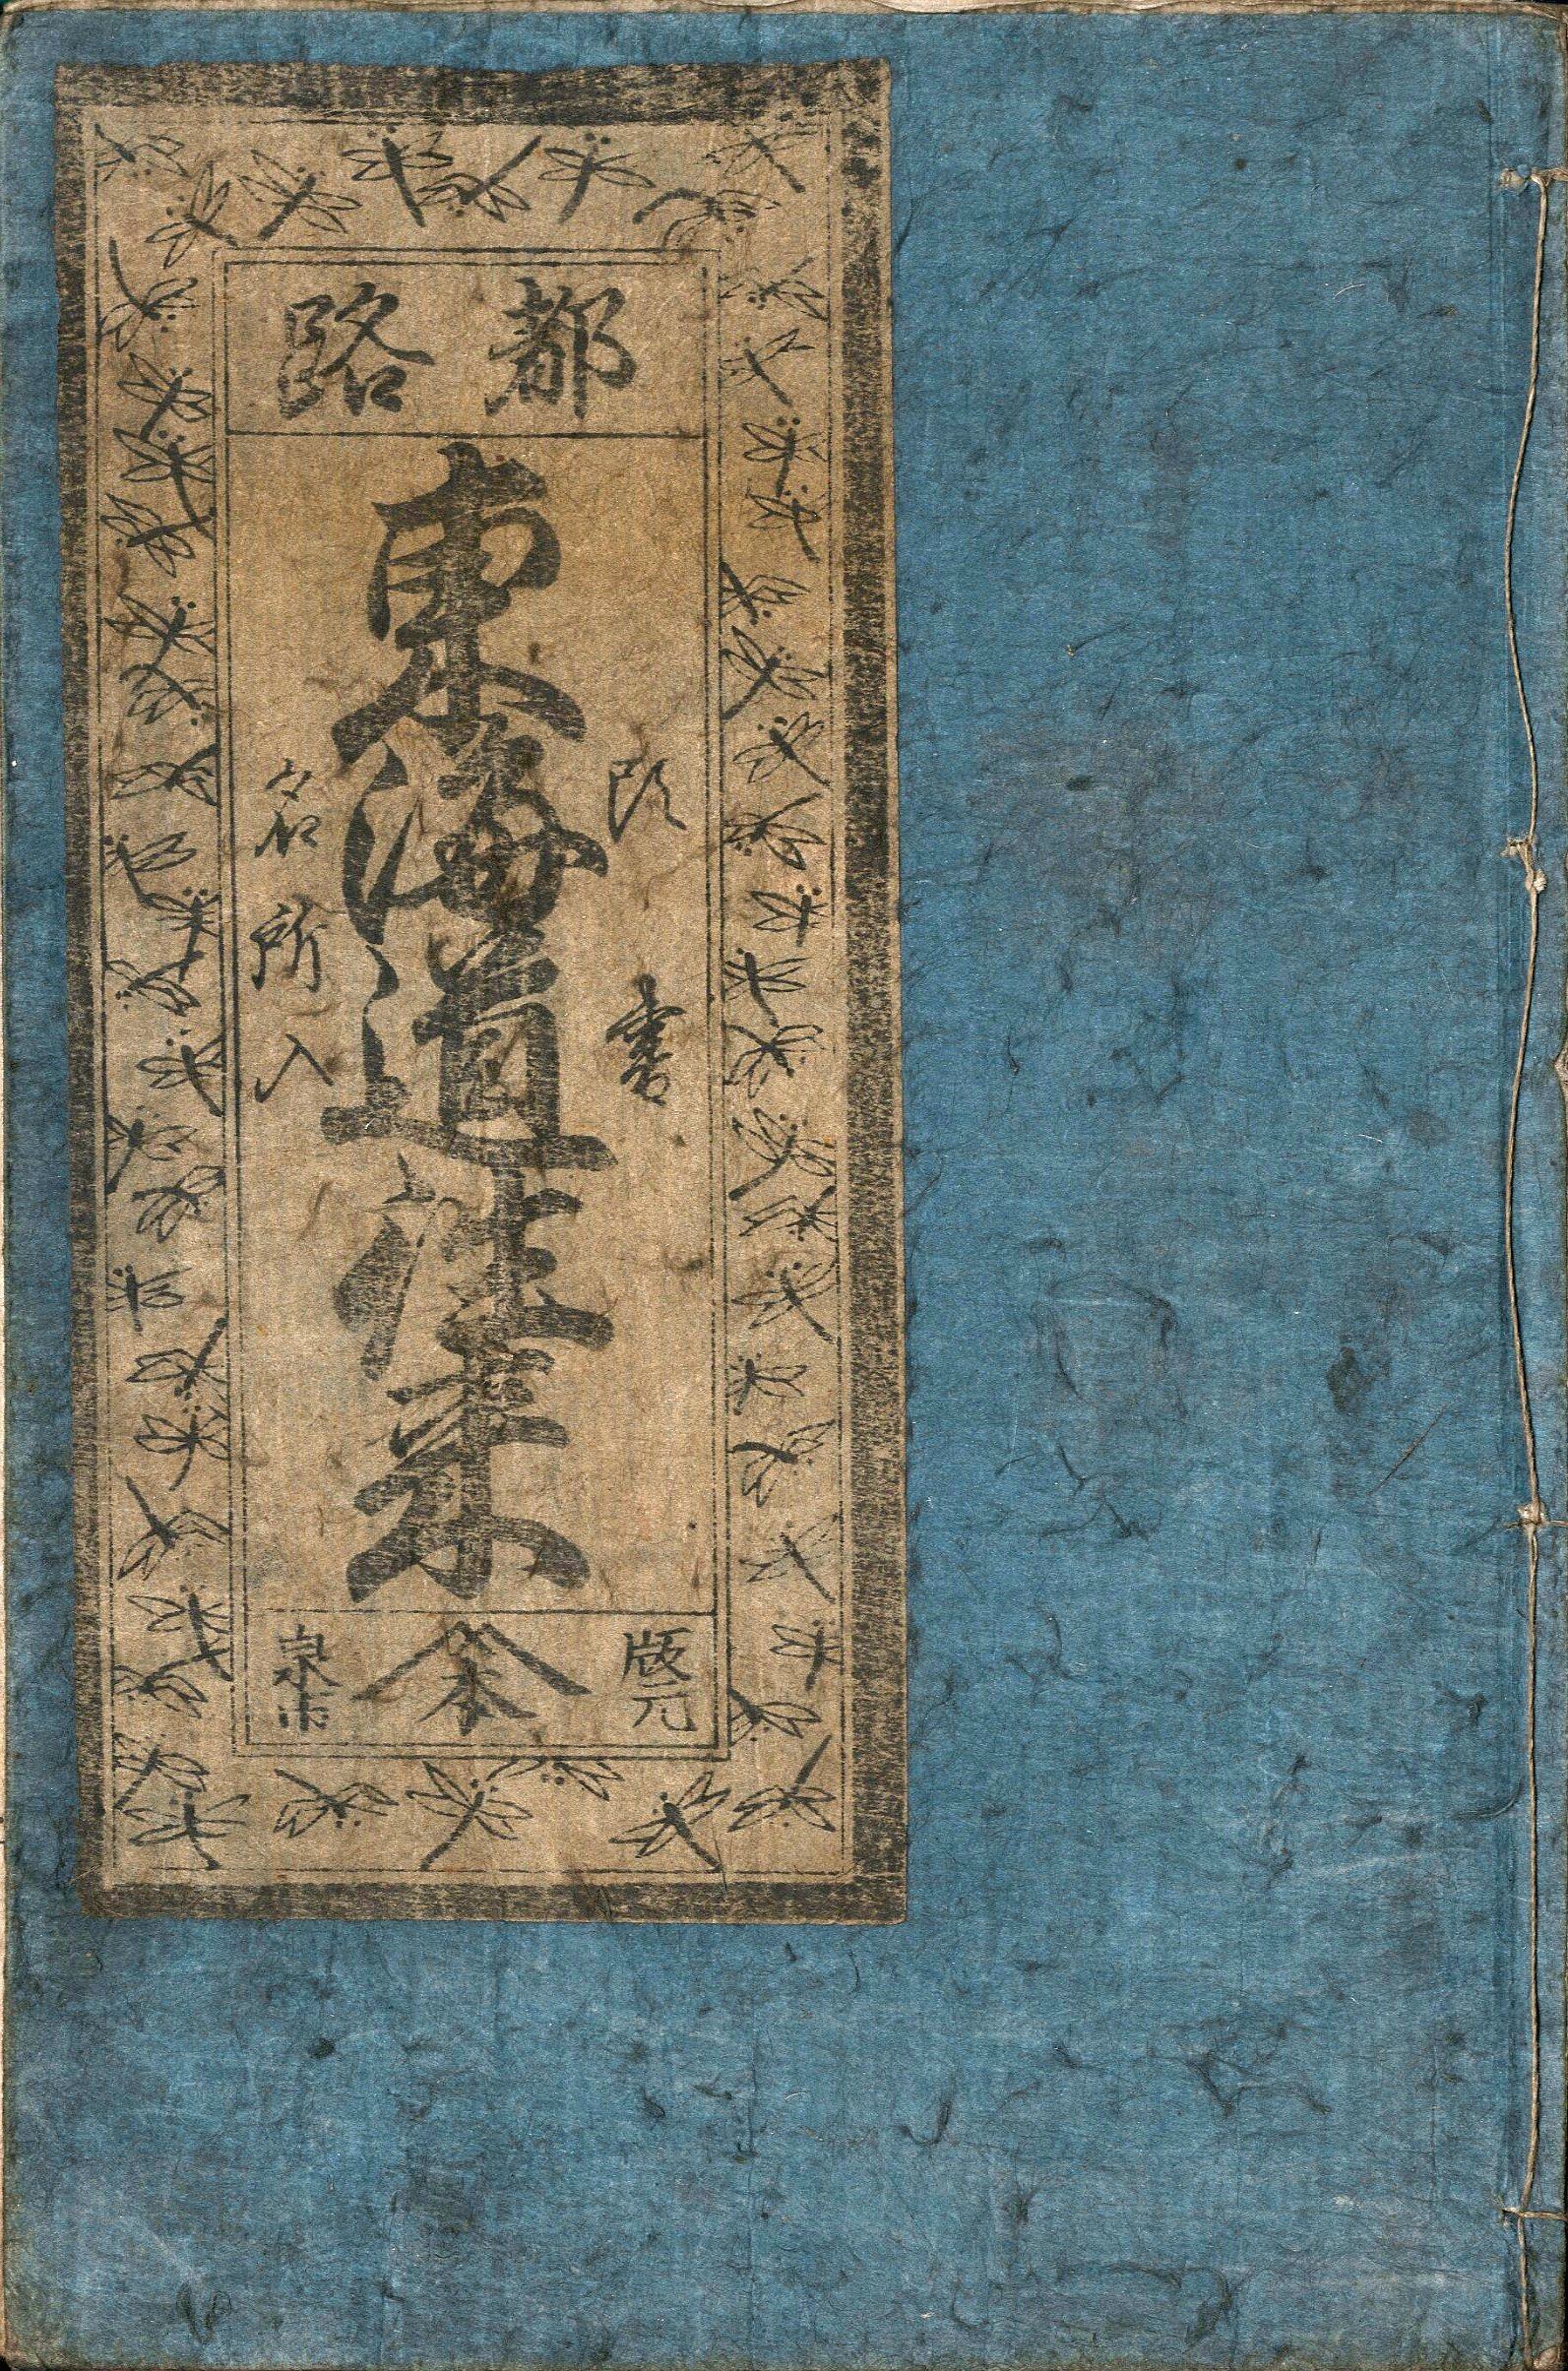 都路
頭書
東海道往来
名所入
版元
本
泉市